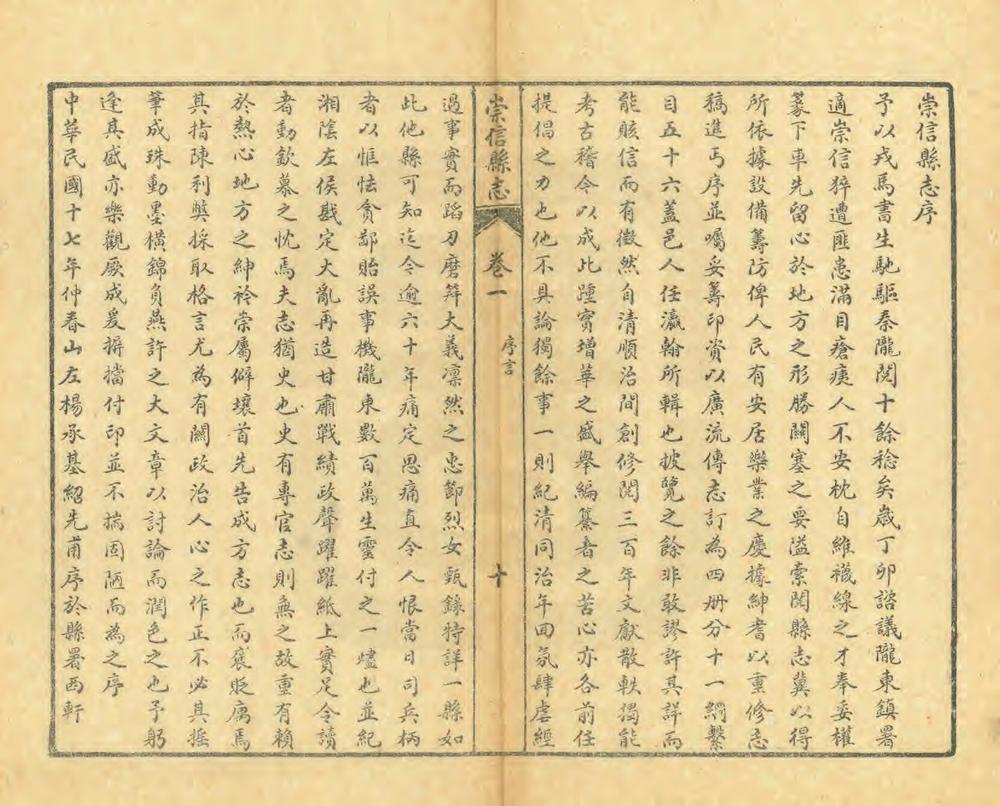 崇信縣志序
予以戎馬書生馳驅秦隴閱十餘稔矣歲丁卯諮議隴東鎮署
適崇信猝遭匪患滿目瘡痍人不安枕自維襪線之才奉委權
篆下車先留心於地方之形勝關塞之要溢索閱縣志冀以得
所依據設備籌防俾人民有安居樂業之慶據紳耆以重修志
稿進丐序並囑妥籌印資以廣流傳志訂為四册分十一綱繫
目五十六蓋邑人任瀛翰所輯也披覽之餘非敢謬許其詳而
能賅信而有徵然自清順治間創修閱三百年文獻散軼獨能
考古稽今以成此踵實增華之盛舉編纂者之苦心亦各前任
提倡之力也他不具論獨餘事一則紀清同治年回氛肆虐經
崇信縣志 卷一 序言 十
過事實而蹈刃磨笄大義凛然之忠節烈女甄錄特詳一縣如
此他縣可知迄今逾六十年痛定思痛直令人恨當日司兵柄
者以恇怯貪鄙貽誤事機隴東數百萬生靈付之一燼也並紀
湘陰左侯戡定大亂再造甘肅戰績政聲躍躍紙上實足令讀
者動欽慕之忱焉夫志猶史也史有專官志則無之故重有賴
於熱心地方之紳衿崇屬僻壤首先告成方志也而褒貶寓焉
其指陳利弊採取格言尤為有關政治人心之作正不必其搖
筆成珠動墨橫錦負燕許之大文章以討論而潤色之也予躬
逢其盛亦樂觀厥成爰摒擋付印並不揣固陋而為之序
中華民國十七年仲春山左楊承基紹先甫序於縣署西軒